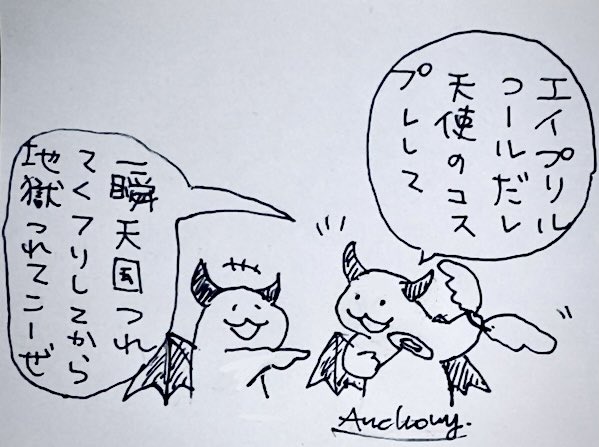 エイプリル
フールだし
天使のコス
プレして
一瞬天国つれ
てくフリしてから
地獄つれてこーぜ